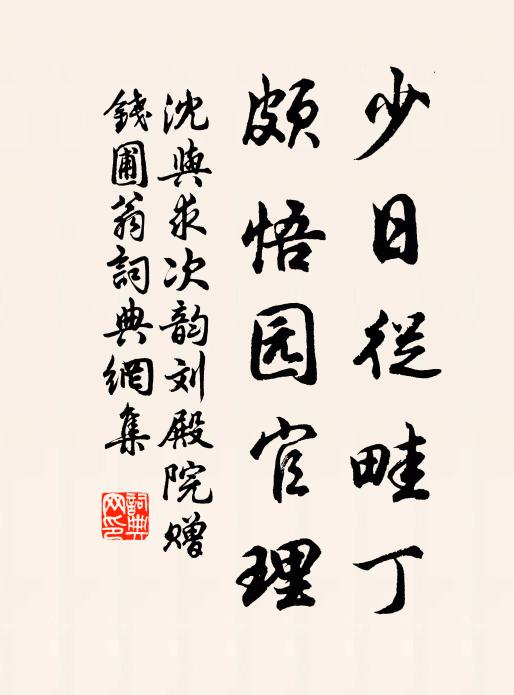 少日從畦丁
頗悟园官理
沈與求次韵刘殿院赠
錢圃翁詞典網集
詞典网印